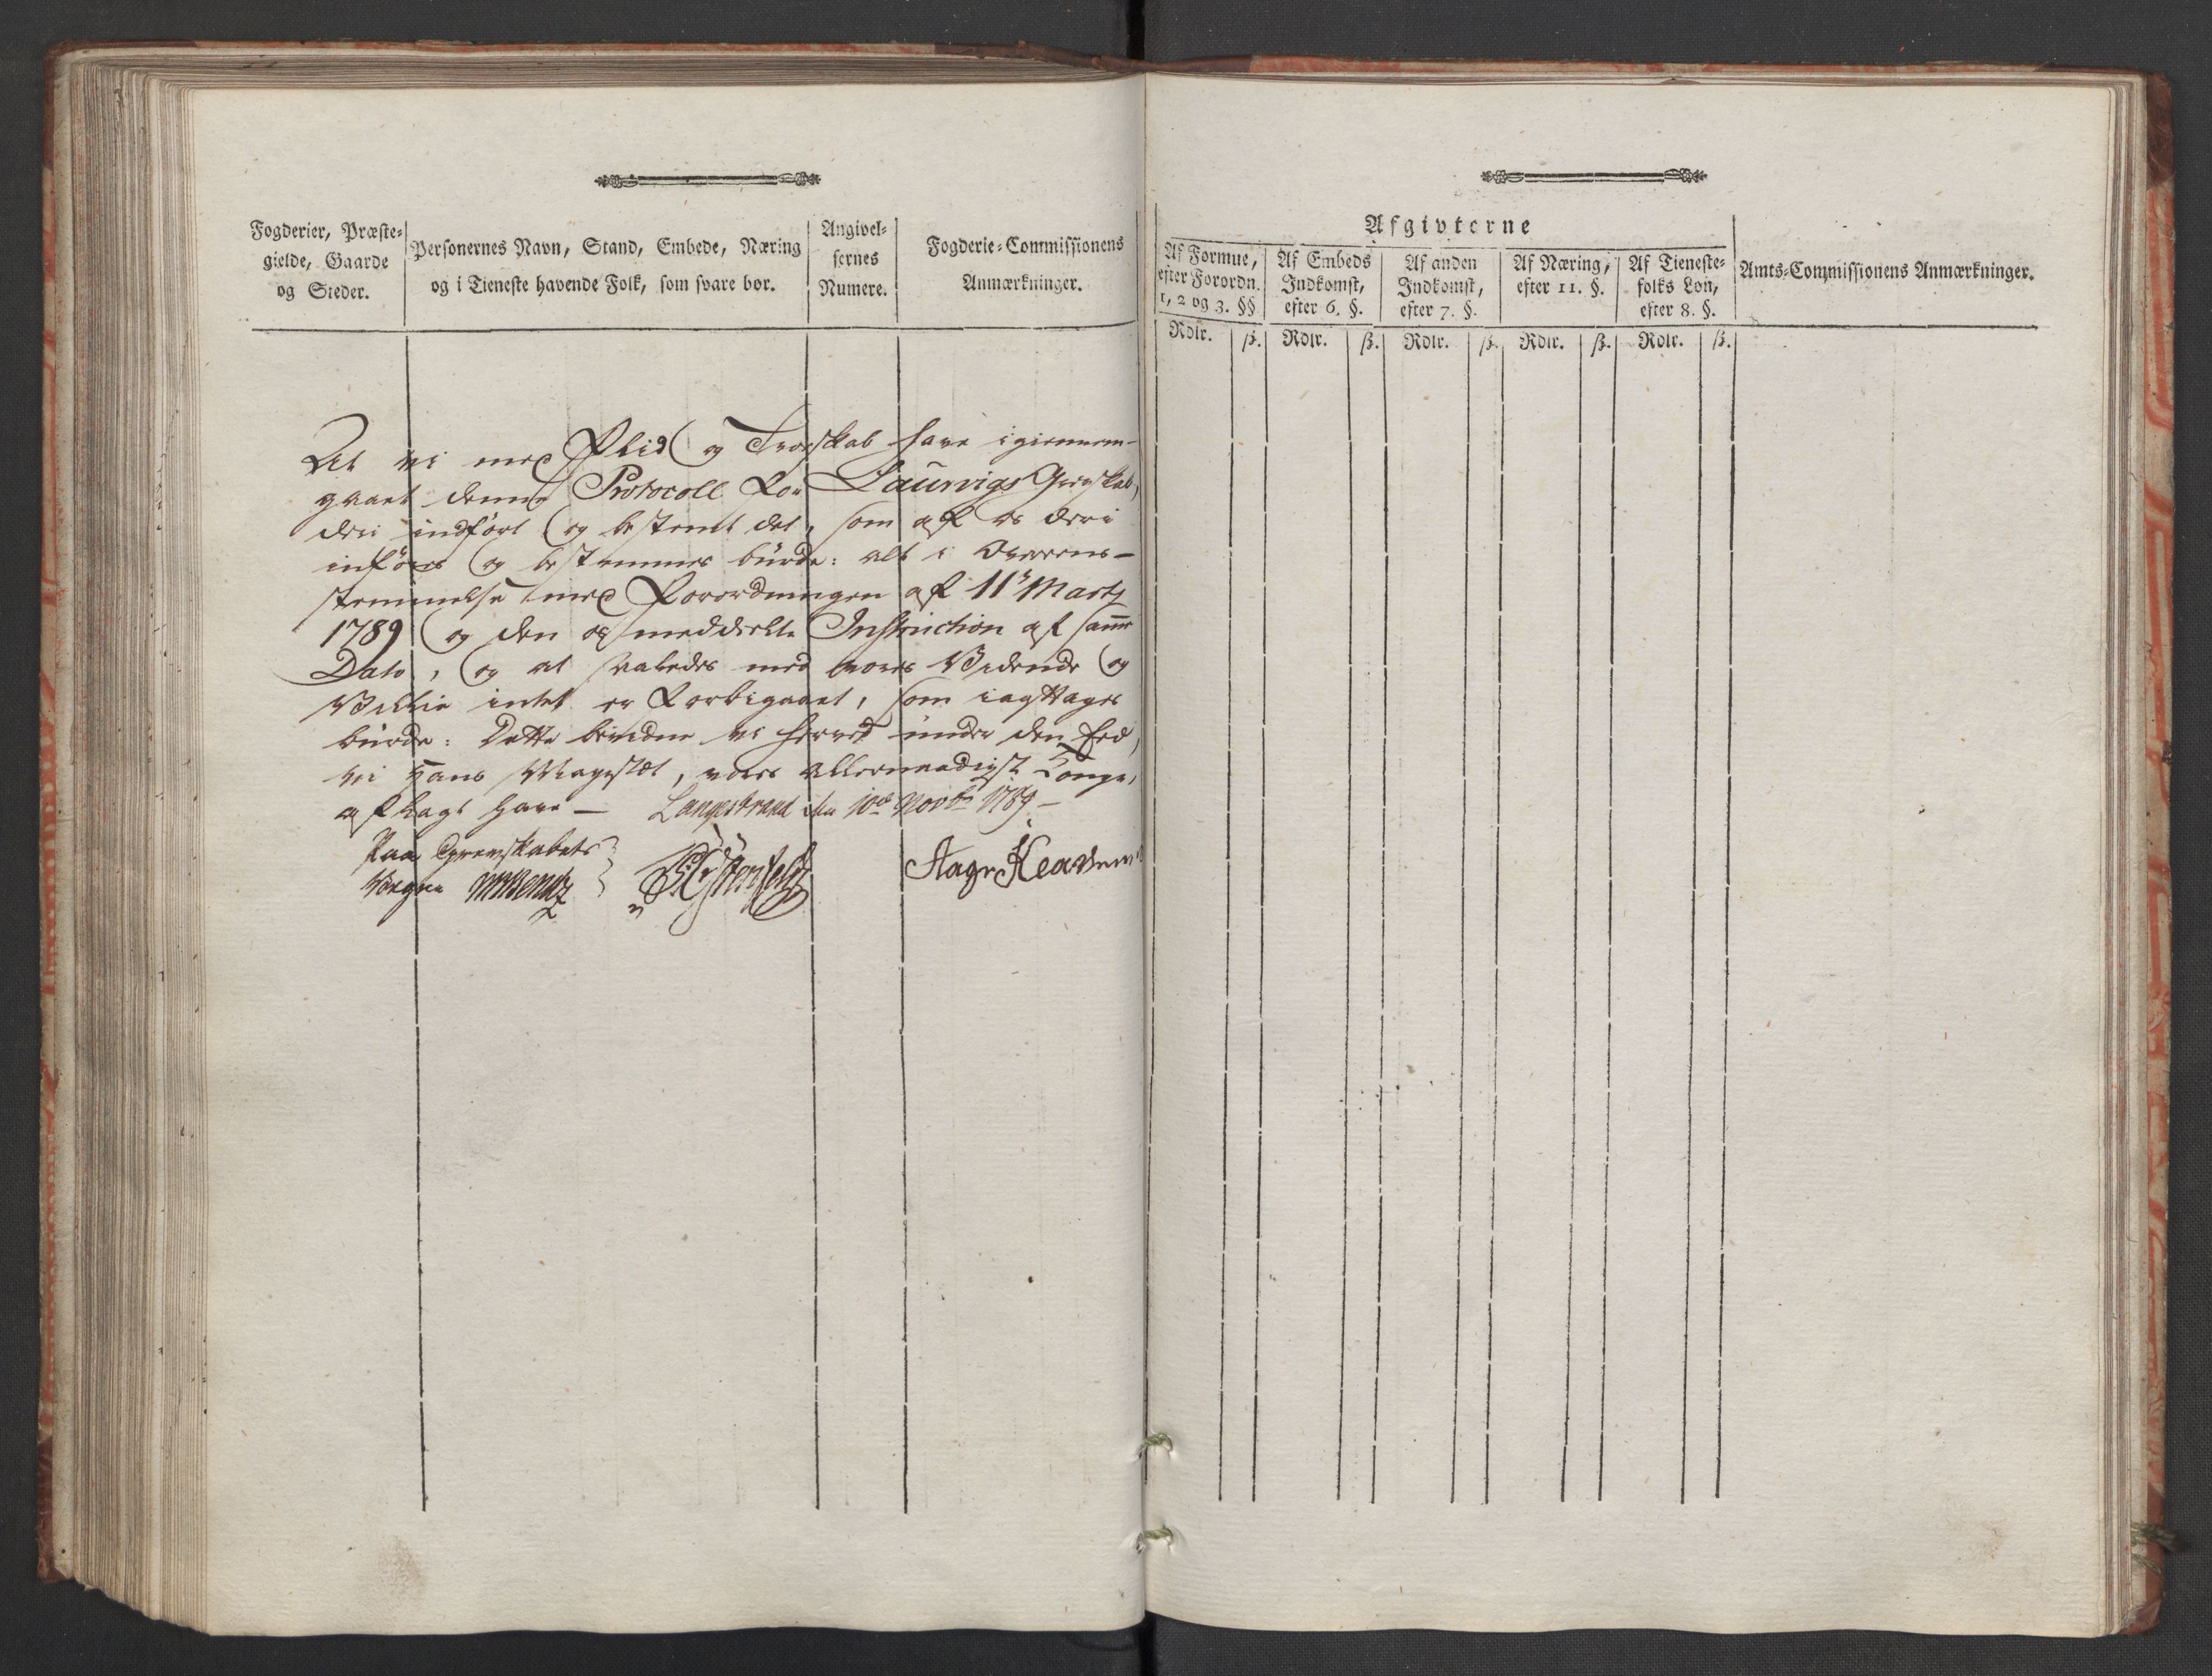 Fogderier, Præste-
gielde, Gaarde
og Steder.
Personernes Navn, Stand, Embede, Næring
og i Tieneste havende Folk, som svare bør.
Angivel-
sernes
Numere.
Fogderie-Commissionens
Anmærkninger.
At vi med Flid og Troeskab have igiennem-
gaaet denne Protocoll for Laurvigs Grevskab,
deri indført og bestemt det, som af os deri
inføres og bestemmes burde: alt i Overens-
stemmelse med Forordningen af 11te Marts
1789 og den os meddeelte Instruction af samme
Dato, og at saaledes med vores Vidende og
Villie intet er forbigaaet, som iagttages
burde: Dette bevidne vi herved under den Eed,
vi Hans Majestæt, vores allernaadigst Konge,
aflagt have — Langestrand den 10de Novbr 1789 —
Paa Grevskabets
Vegne
Aage
Afgivterne
Af Formue,
efter Forordn.
1, 2 og 3. §§
Af Embeds
Indkomst,
efter 6. §.
Af anden
Indkomst,
efter 7. §.
Af Næring,
efter 11. §.
Af Tieneste-
folks Løn,
efter 8. §.
Amts-Commissionens Anmærkninger.
Rdlr. ß. Rdlr. ß. Rdlr. ß. Rdlr. ß. Rdlr. ß.